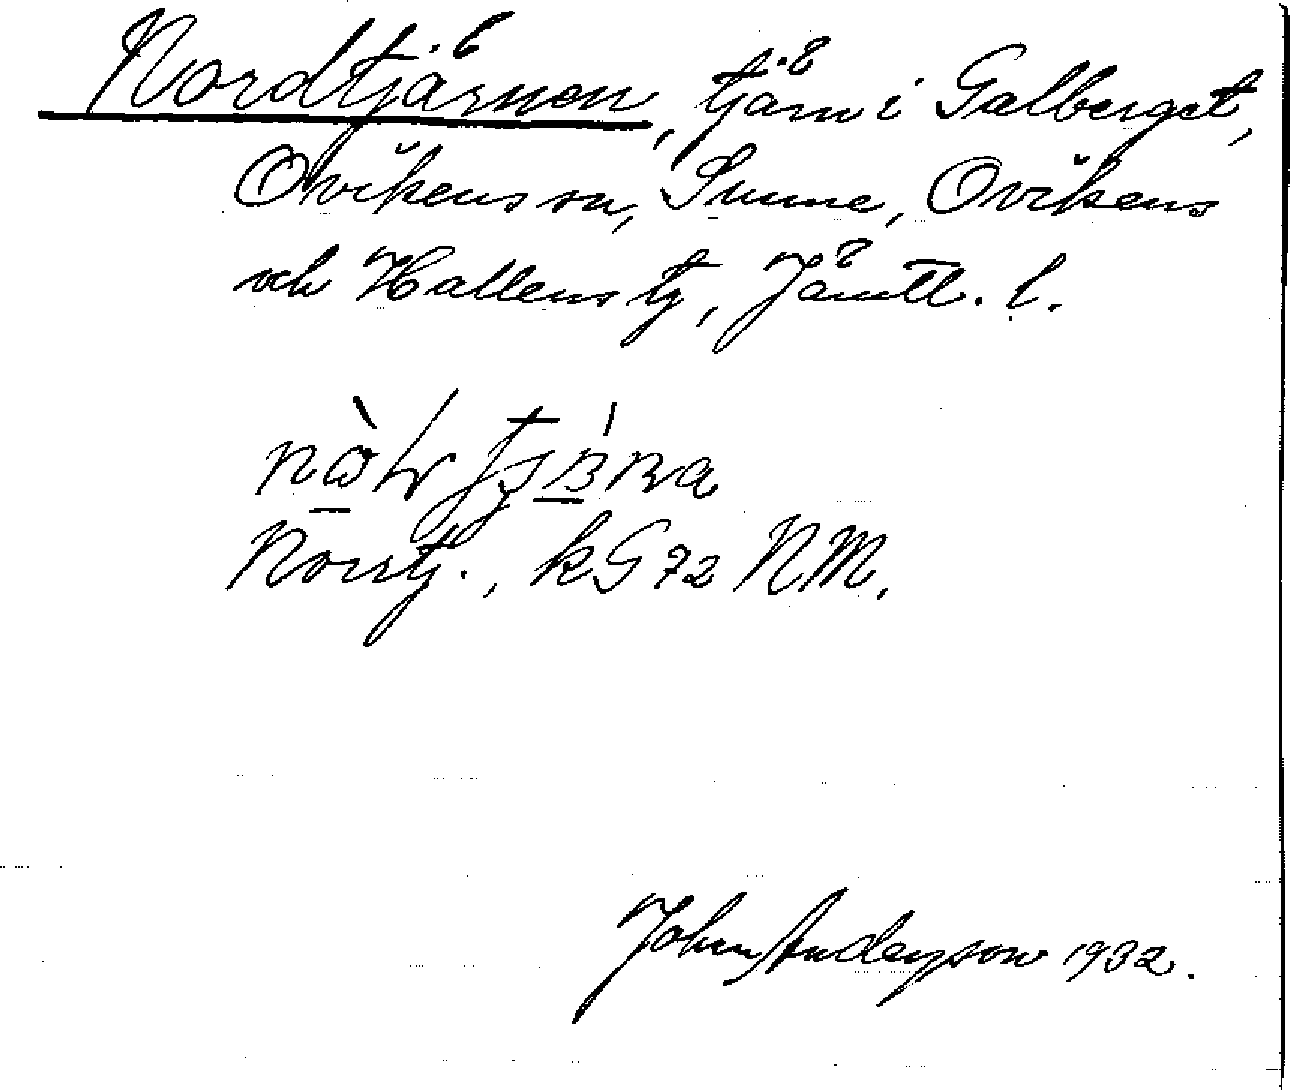 Nordtjärnen, tjärn i Galberget,
Ovikens sn, Sunne, Ovikens
och Hallens tg, Jämtl. l.
Norrtj., kG 72 NM.
John Anderson 1932.